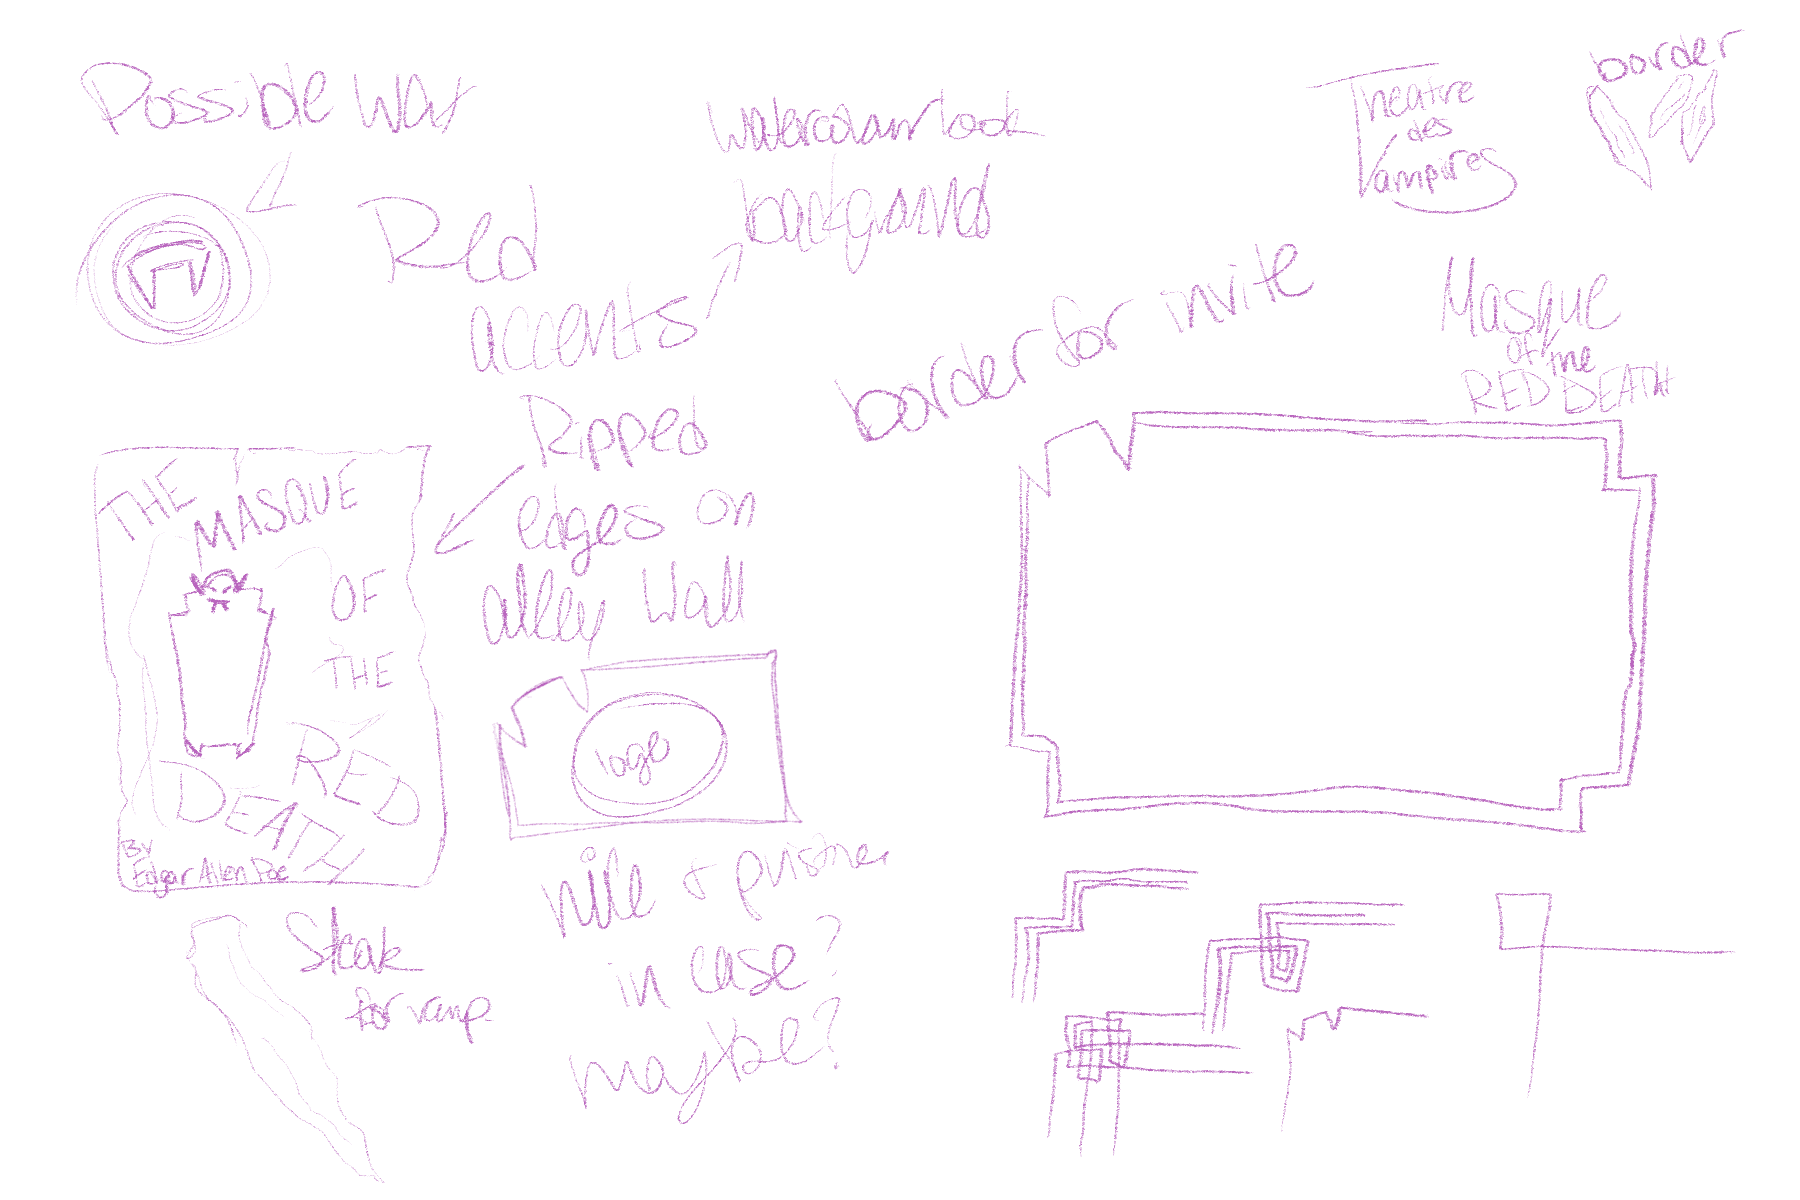 Possible wax
Red
accents
watercolour look
background
Theatre
des
Vampires
border
border for invite
Masque
of the
RED DEATH
Ripped
edges on
alley wall
THE
MASQUE
OF
THE
RED
DEATH
By
Edgar Allen Poe
logo
Steak
for vamp
nice &
in case?
maybe?